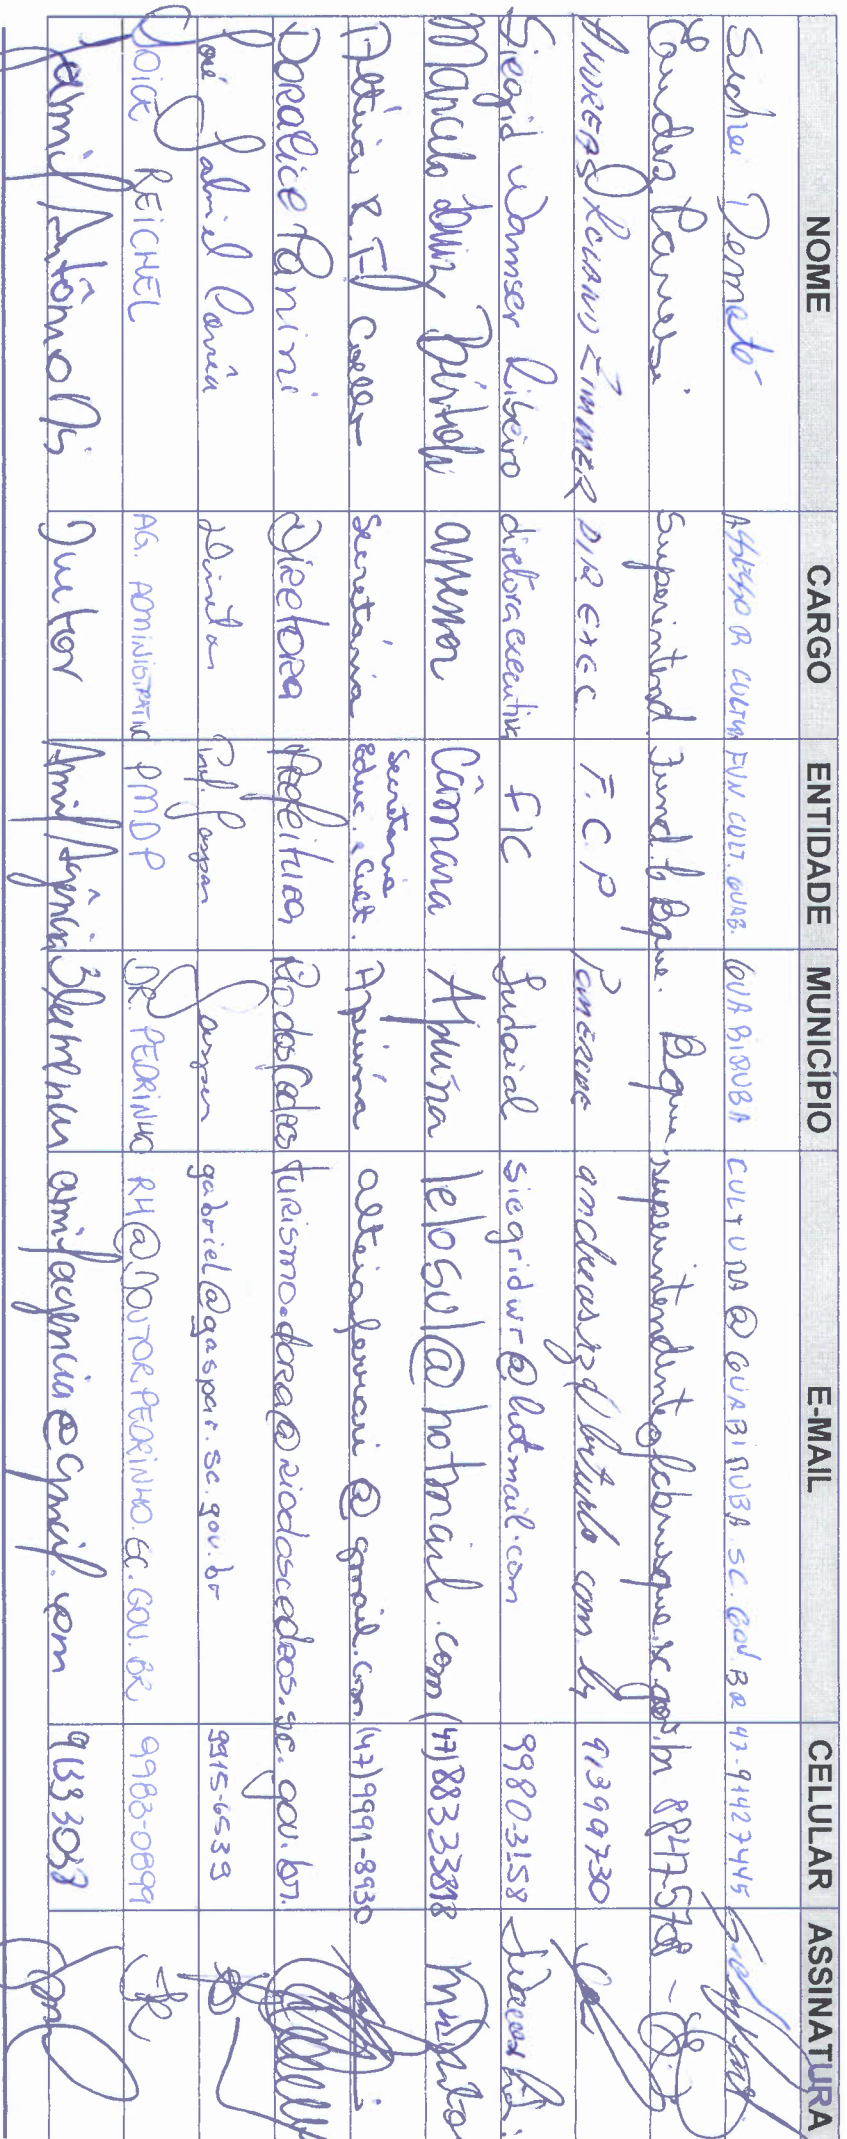 NOME CARGO ENTIDADE MUNICÍPIO E-MAIL CELULAR ASSINATURA
Demató ASSESSOR CULTURA FUN. CULT. GUAB. GUABIRUBA CULTURA@GUABIRUBA.SC.GOV.BR 47-91427445
Superintend. Fund. C. Bque. Bque superintendente@fcbrusque.sc.gov.br
ANDREAS ZIMMER DIR EXEC F.C.P Pomerode 91399730
Siegrid Wamser Ribeiro diretora executiva FIC Indaial siegridwr@hotmail.com 9980-3158
Marcelo Luiz assessor Câmara Apiúna lelosul@hotmail.com (47)88333898
Altéia R. F. Coeller Secretária Secretaria Educ. e Cult. Apiúna alteiaferrari@gmail.com (47)9991-8930
Doralice Panini Diretora Prefeitura Rio dos Cedros turismo.dora@riodoscedros.sc.gov.br.
José Gabriel Corrêa Diretor Pref. Gaspar Gaspar gabriel@gaspar.sc.gov.br 9915-6539
JOICE REICHEL AG. ADMINISTRATIVO PMDP DR. PEDRINHO RH@DOUTORPEDRINHO.SC.GOV.BR 9983-0899
Jamil Antônio Diretor Amil Agência Blumenau amilagencia@gmail.com